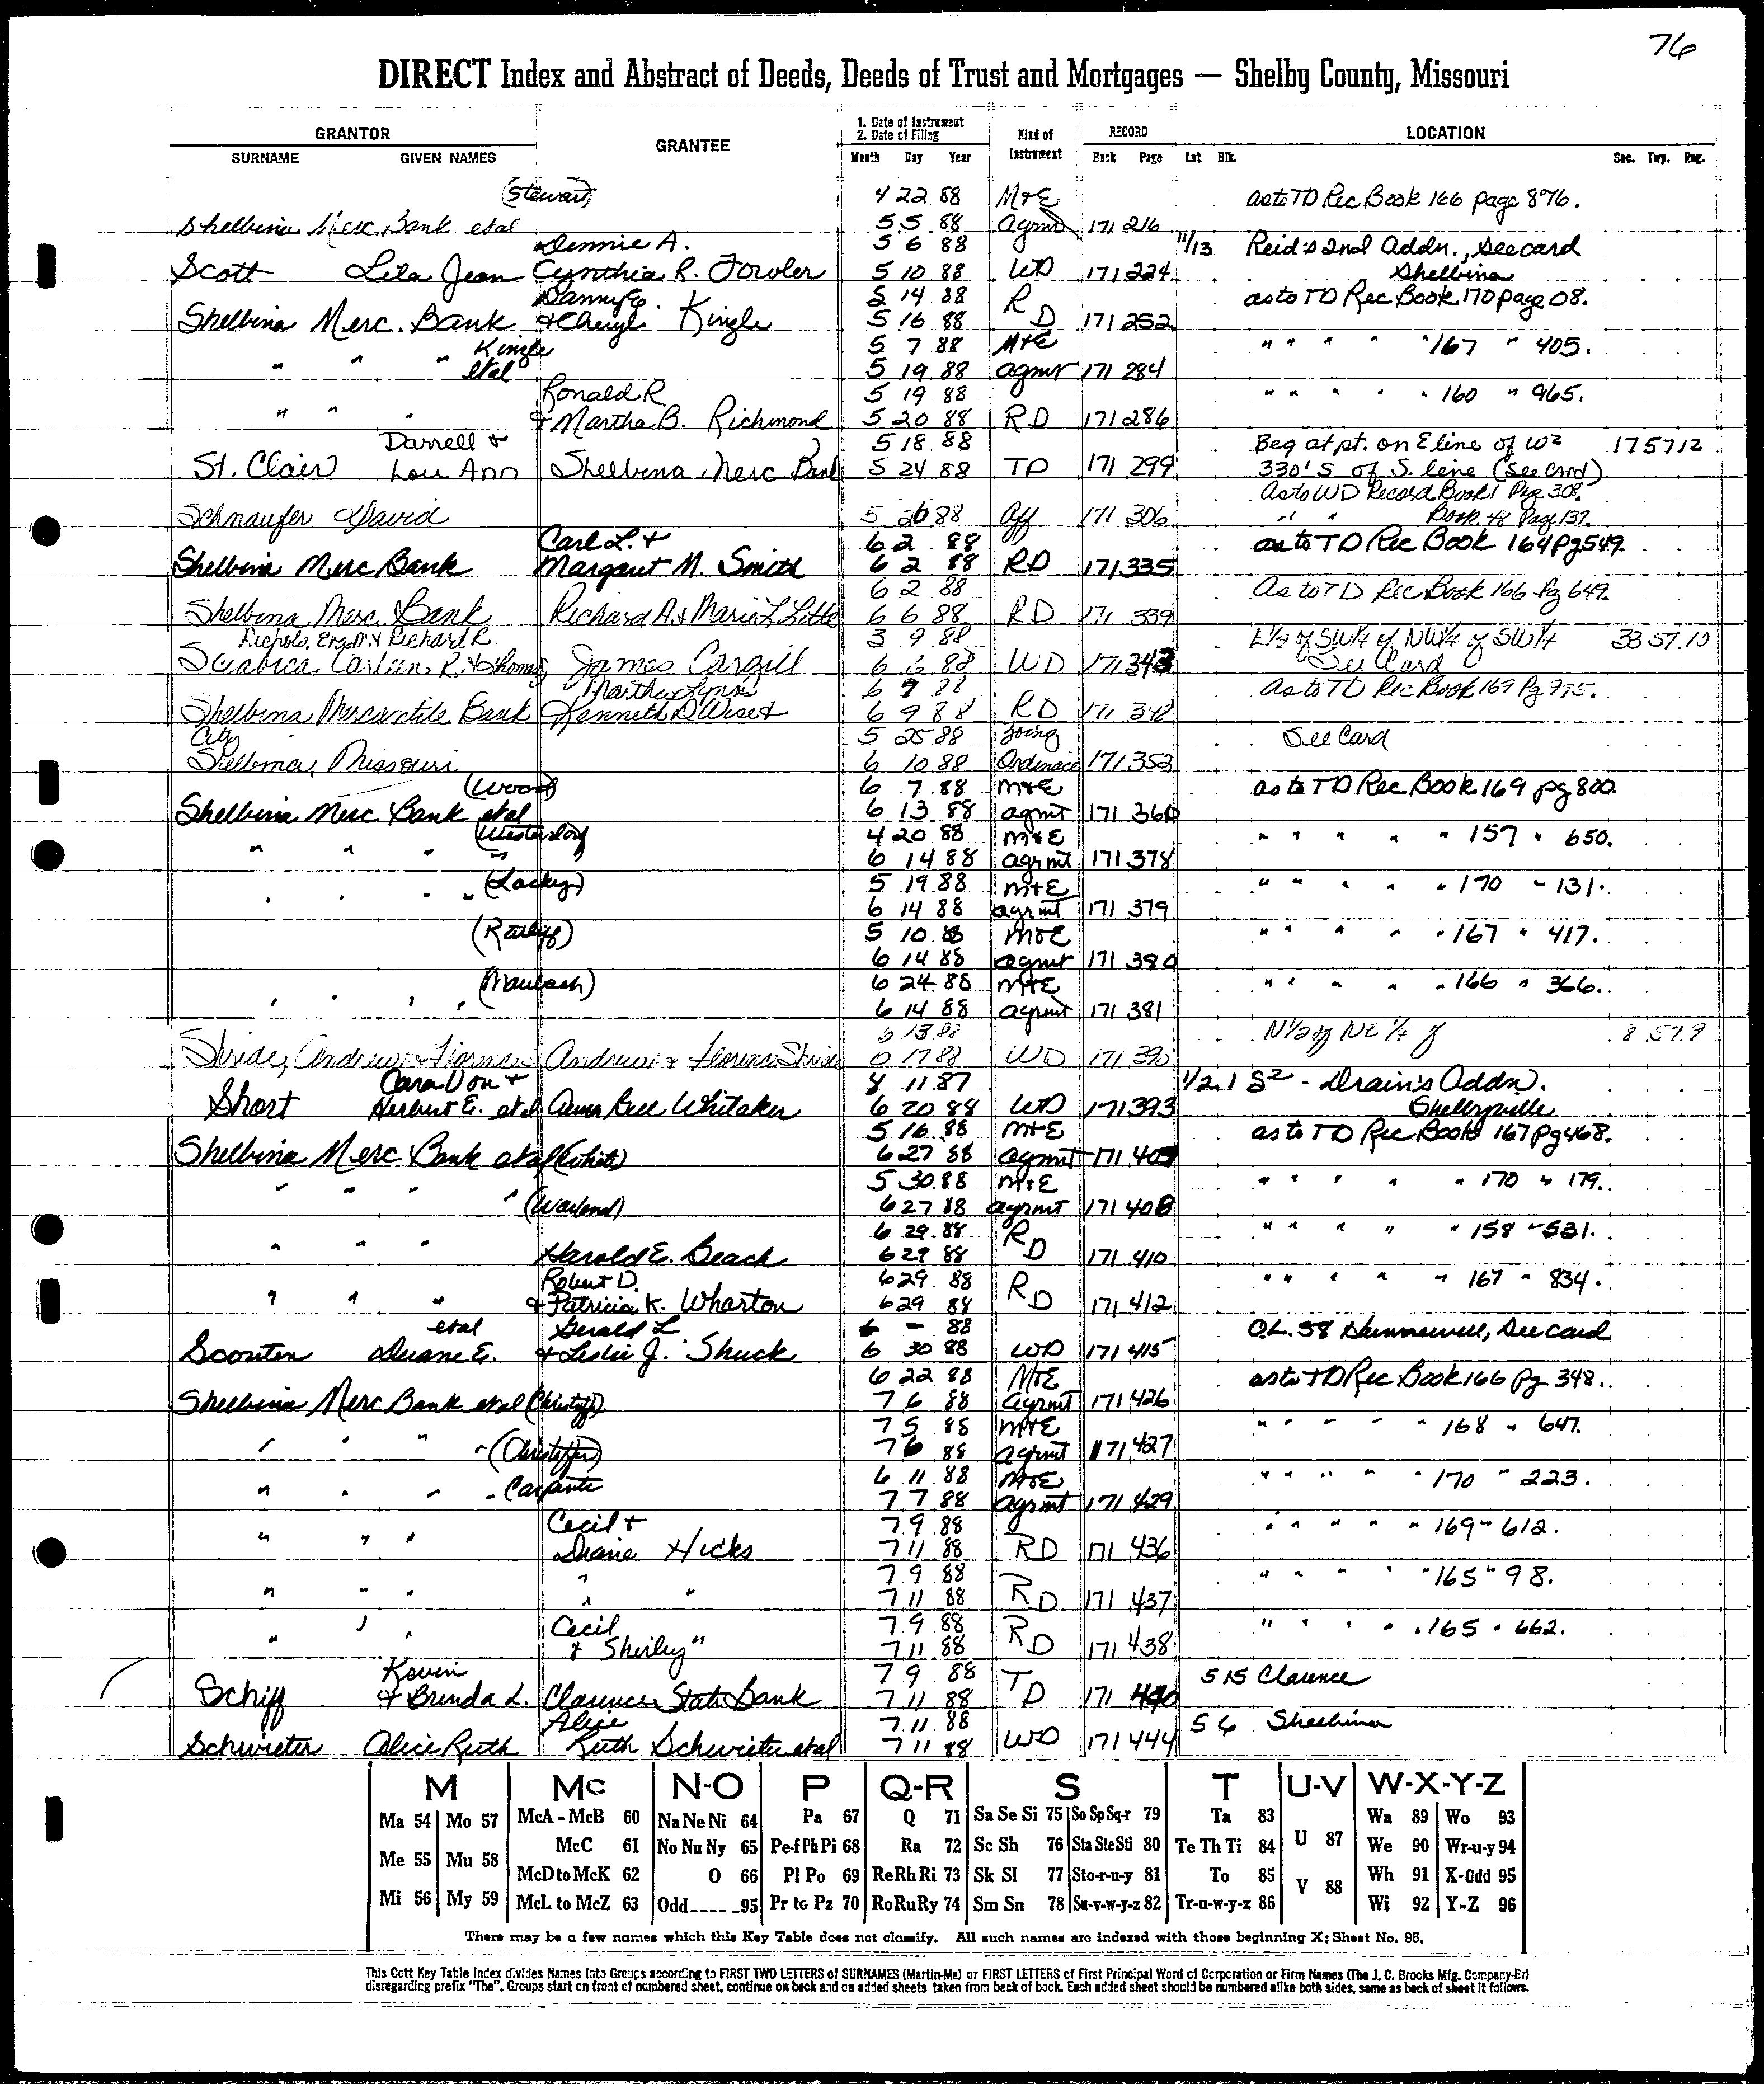 76
DIRECT Index and Abstract of Deeds, Deeds of Trust and Mortgages — Shelby County, Missouri
GRANTOR GRANTEE 1. Date of Instrument 2. Date of Filing Kind of Instrument RECORD LOCATION
SURNAME GIVEN NAMES Month Day Year Book Page Lot Blk. Sec. Twp. Rng.
(Stewart) 4 22 88 M+E as to TD Rec Book 166 page 876.
Shelbina Merc. Bank etal 5 5 88 agrmt 171 216
Dennie A. 5 6 88 11/13 Reid's 2nd Addn., See card
Scott Lila Jean Cynthia R. Fowler 5 10 88 WD 171 224 Shelbina
Danny E. 5 14 88 R as to TD Rec Book 170 page 08.
Shelbina Merc. Bank + Cheryl Kingle 5 16 88 D 171 252
" " " Kingle 5 7 88 M+E " " " " " 167 " 405.
etal 5 19 88 agmt 171 284
Ronald R. 5 19 88 " " " " " 160 " 965.
" " " + Martha B. Richmond 5 20 88 RD 171 286
Darrell + 5 18 88 Beg at pt. on E line of W2 17 57 12
St. Clair Lou Ann Shelbina Merc Bank 5 24 88 TD 171 299 330' S of S. line (See Card)
As to WD Record Book 1 Pge 308.
Schnaufer David 5 26 88 Aff 171 306 " " Book 48 Page 137.
Carl L. + 6 2 88 as to TD Rec Book 164 pg 549.
Shelbina Merc Bank Margaret M. Smith 6 2 88 RD 171 335
6 2 88 As to TD Rec Book 166 Pg 649.
Shelbina Merc. Bank Richard A. + Maria L. 6 6 88 RD 171 339
Nichols, & Richard R. 3 9 88 of SW1/4 of NW1/4 of SW1/4 33 57 10
Sciabica, R. + Thomas James Cargill 6 6 88 WD 171 343 See Card
Martha Lynn 6 9 88 As to TD Rec Book 169 Pg 995.
Shelbina Mercantile Bank Kenneth D Wise + 6 9 88 RD 171 348
City 5 25 88 Zoing See Card
Shelbina, Missouri 6 10 88 Ordinace 171 353
(Wood) 6 7 88 M+E as to TD Rec Book 169 pg 800.
Shelbina Merc Bank etal 6 13 88 agmt 171 360
(Westendorf) 4 20 88 M+E " " " " " 157 " 650.
" " " " 6 14 88 agrmt 171 378
" " " " (Lackey) 5 19 88 M+E " " " " " 170 " 131.
6 14 88 agrmt 171 379
(Ratliff) 5 10 88 M+E " " " " " 167 " 417.
6 14 88 agmt 171 380
(Maubach) 6 24 88 M+E " " " " " 166 " 366.
" " " " 6 14 88 agrmt 171 381
6 13 88 N1/2 of NE 1/4 of 8 57 9
Andrew + Andrew + Florence 6 17 88 WD 171 390
Cara Von + 8 11 87 1/2 1 S2 - Drain's Addn.
Short Herbert E. etal Bell Whitaker 6 20 88 WD 171 393 Shelbyville
5 16 88 M+E as to TD Rec Book 167 pg 468.
Shelbina Merc Bank etal (White) 6 27 88 agmt 171
5 30 88 M+E " " " " " 170 " 179.
" " " " (Wayland) 6 27 88 agrmt 171 408
6 29 88 R " " " " " 158 " 531.
" " " Harold E. Beach 6 29 88 D 171 410
Robert D. 6 29 88 R " " " " " 167 " 834.
" " " + Patricia K. Wharton 6 29 88 D 171 412
etal Gerald L 6 — 88 O.L. 58 Hunnewell, See card
Scouten Duane E. + Leslie J. Shuck 6 30 88 WD 171 415
6 22 88 M+E as to TD Rec Book 166 Pg 348.
Shelbina Merc Bank etal (Christoffer) 7 6 88 agrmt 171 426
7 5 88 M+E " " " " " 168 " 647.
" " " " (Christoffer) 7 6 88 agrmt 171 427
6 11 88 M+E " " " " " 170 " 223.
" " " " Carpenter 7 7 88 agrmt 171 429
Cecil + 7 9 88 " " " " " 169 " 612.
" " " Diane Hicks 7 11 88 RD 171 436
7 9 88 " " " " " 165 " 98.
" " " " " 7 11 88 RD 171 437
Cecil 7 9 88 " " " " " 165 " 662.
" " " + Shirley " 7 11 88 RD 171 438
Kevin 7 9 88 T 5 15 Clarence
Schiff + Brenda L. Clarence State Bank 7 11 88 D 171 440
Alice 7 11 88 5 6 Shelbina
Schwieter Alice Ruth Ruth Schwieter etal 7 11 88 WD 171 444
M Mc N-O P Q-R S T U-V W-X-Y-Z
Ma 54 Mo 57 McA - McB 60 Na Ne Ni 64 Pa 67 Q 71 Sa Se Si 75 So Sp Sq-r 79 Ta 83 U 87 Wa 89 Wo 93
Me 55 Mu 58 McC 61 No Nu Ny 65 Pe-f Ph Pi 68 Ra 72 Sc Sh 76 Sta Ste Sti 80 Te Th Ti 84 We 90 Wr-u-y 94
McD to McK 62 O 66 Pl Po 69 Re Rh Ri 73 Sk Sl 77 Sto-r-u-y 81 To 85 V 88 Wh 91 X-Odd 95
Mi 56 My 59 McL to McZ 63 Odd 95 Pr to Pz 70 Ro Ru Ry 74 Sm Sn 78 Su-v-w-y-z 82 Tr-u-w-y-z 86 Wi 92 Y-Z 96
There may be a few names which this Key Table does not classify. All such names are indexed with those beginning X; Sheet No. 95.
This Cott Key Table Index divides Names Into Groups according to FIRST TWO LETTERS of SURNAMES (Martin-Ma) or FIRST LETTERS of First Principal Word of Corporation or Firm Names (The J. C. Brooks Mfg. Company-Br)
disregarding prefix "The". Groups start on front of numbered sheet, continue on back and on added sheets taken from back of book. Each added sheet should be numbered alike both sides, same as back of sheet it follows.